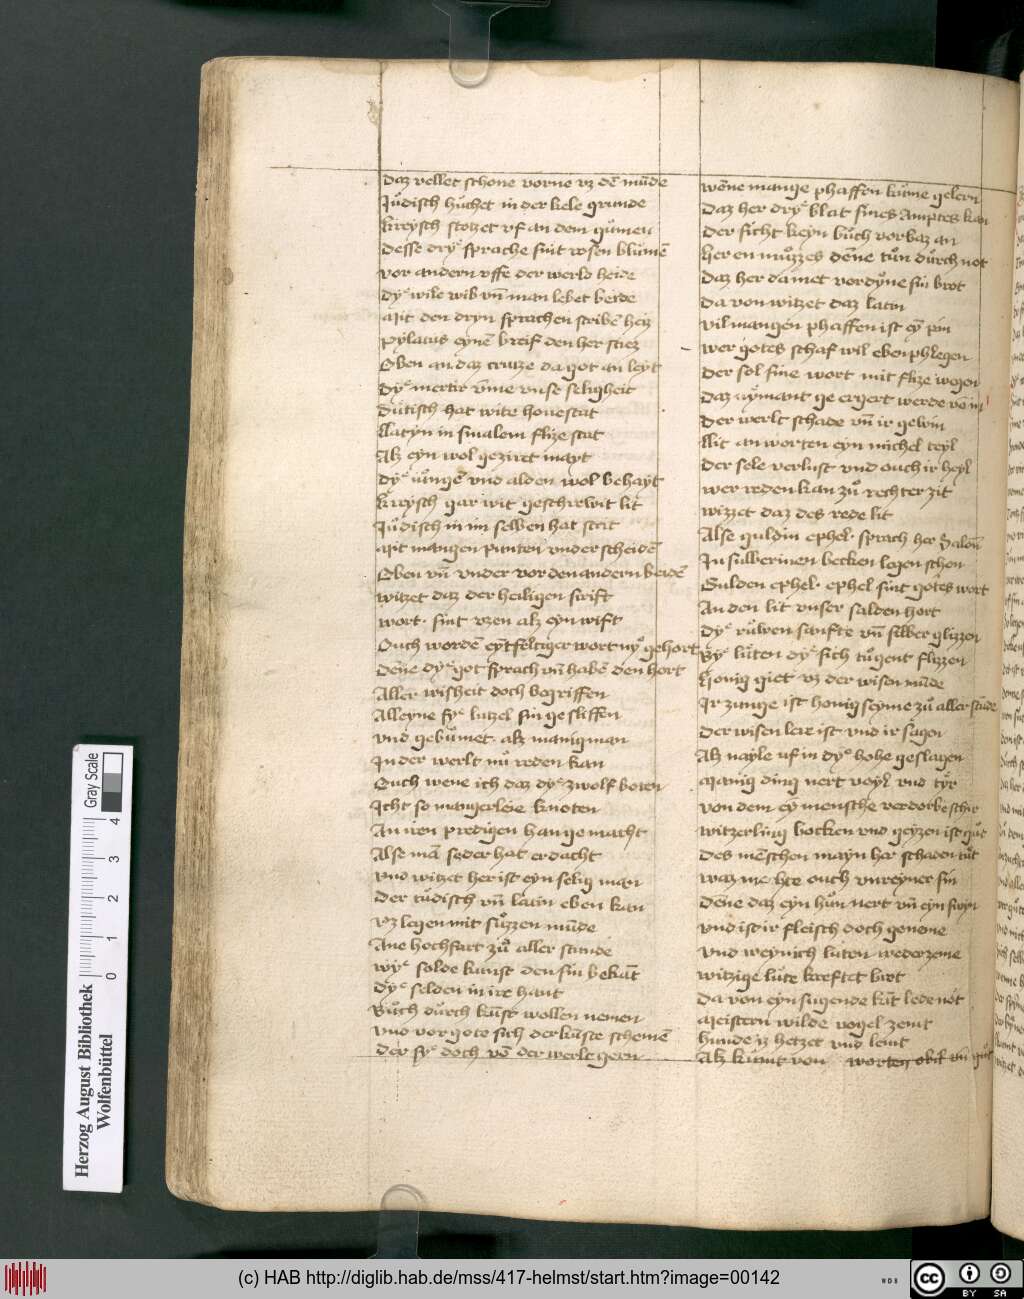 Daz vellet schone vorne vz dē mūde
Jůdisch hůchet in der kele grunde
Kreysch stotzet vf an dem gůmen
Desse dryͤ sprache sint rosen blůmē
vor andern vffe der werld heide
Dyͤ wile wib vn̄ man lebet beide
Mit den dryn sprachen scribē hey
Pylatus eynē breif den her stiez
Oben an daz cruze da got an leyt
Dyͤ mertir vme vnse selicheit
Dutisch hat wite honestat
Latyn in smalem flize stat
Als eyn wol geziret mayt
Dyͤ iungē vnd alden wol behayt
Kreysch gar wit geschrewit lit
Jůdisch in im selben hat strit
Mit mangen punten vnder scheidē
Oben vn̄ vnder vor den andern beidē
Witzet daz der heiligen scrift
Wort sint vzen alz eyn wift
Ouch wordē eynfeltiger wort ny gehort
Dene dyͤ got sprach vn̄ habē den hort
Aller wisheit doch begriffen
Alleyne syͤ lutzel sin gesliffen
Vnd geblůmet alz manig man
In der werlt nů reden kan
Ouch wene ich daz dyͤ zwolf boten
Icht so mangerleie knoten
An iren predigen han gemacht
Alse mā seder hat erdacht
Vnd witzet her ist eyn selig man
Der tůdisch vn̄ latin eben kan
Vz legen mit sůzzen mūde
Ane hochfart zů aller stunde
Wyͤ solde kunst den sin bekāt
Dyͤ selden in ire hant
Bůch důrch kūst wollen nemen
Vnd vor gote sich der kūste schemē
Der syͤ doch vō der werlt gern
Wēne mange phaffen kůme gelern
Daz her dryͤ blat sines amptes kan
Der sicht keyn bůch vorbaz an
Her en můzzes dēne tůn důrch not
Daz her da met vordyͤne sin brot
Da von witzet daz latin
Vil mangen phaffen ist eyͤ pin
Wer gotes schaf wil eben phlegen
Der sol sine wort mit flize wegen
Daz nymant ge ergert werde
Der werlt schade vn̄ ir gewin
Lit an worten eyn michel teyl
Der sele verlust vnd ouch ir heyl
Wer reden kan zů rechter zit
Wizzet daz des rede lit
Alse guldin ephel sprach her Salōn
In silberinen becken legen schon
Gulden ephel ephel sint gotes wort
An den lit vnser salden hort
Dyͤ růwen sanfte vn̄ silber glizzen
By luten dyͤ sich tůgent flizzen
Honig giet vz der wisen mūde
Ir zunge ist honig seyme zů aller stūde
Der wisen lere ist vnd ir sagen
Als nayle uf in dyͤ hohe geslagen
Manig ding nert voyl vnd tyͤr
Von dem eyͤ mensche verdorbe schir
Witzerling bocken vnd geyzen ist gůt
Des mēschen mayn her schaden tůt
Waz mochte ouch vnreyner sin
Dēne daz eyn hůn nert vn̄ eyn swyn
Vnd ist ir fleisch doch geneme
Vnd weynich luten wederzeme
Witzige lute kreftet brot
Da von eyn sugende kīt lede not
Meistern wilde vogel zemt
Hunde iz hetzet vnd lemt
Als kůmt von worten obil vn̄ gůt
Herzog August Bibliothek
Wolfenbüttel
Gray Scale
0 1 2 3 4
(c) HAB http://diglib.hab.de/mss/417-helmst/start.htm?image=00142
WDB
cc
BY SA